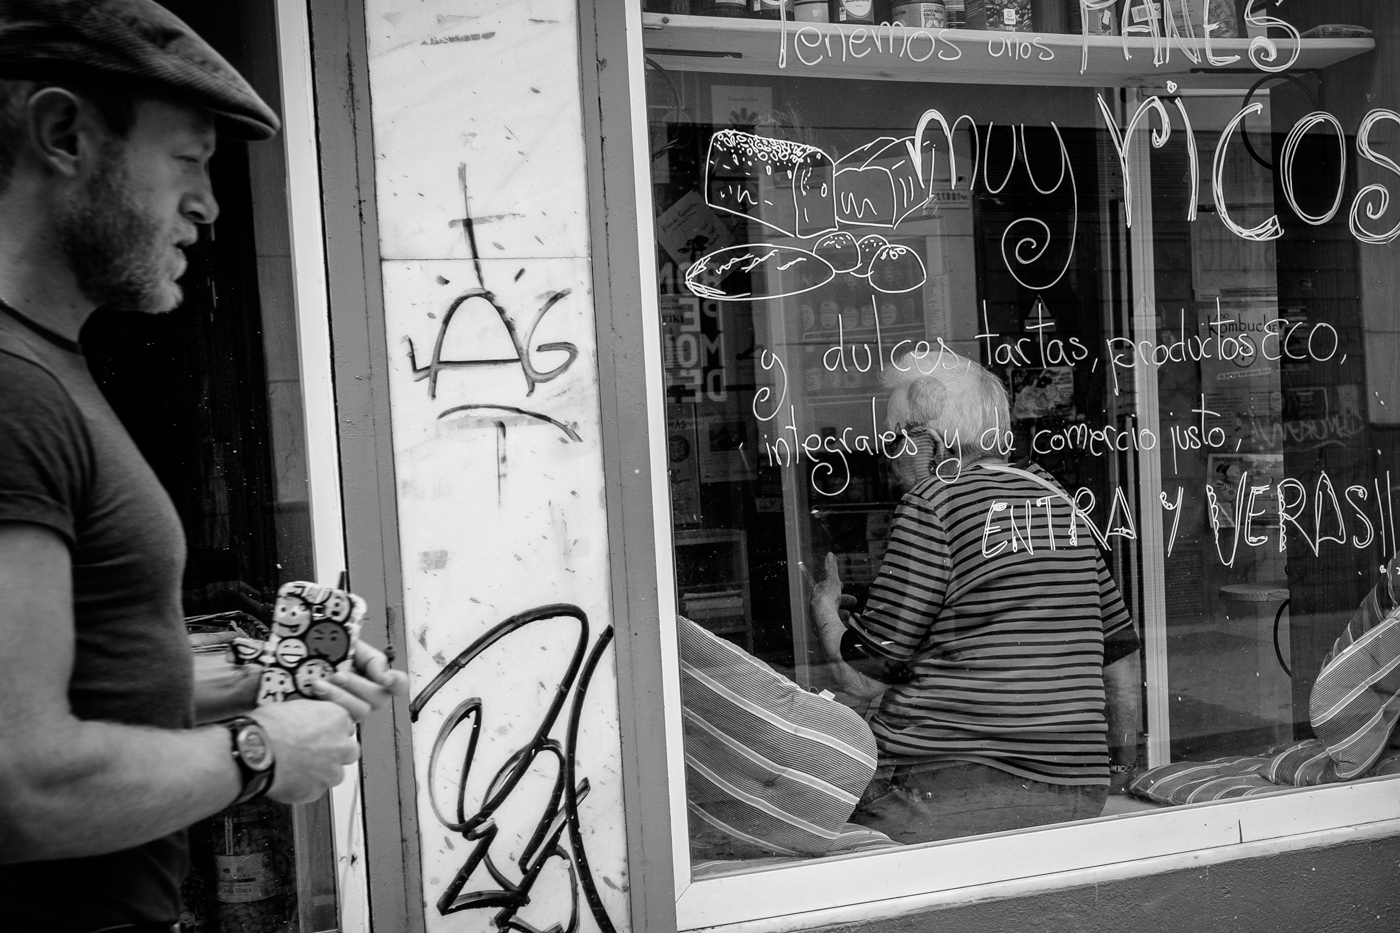 Tenemos unos PANES
muy ricos
y dulces, tartas, productos ECO,
integrales y de comercio justo,
ENTRA Y VERAS!!
Kombucha
AG